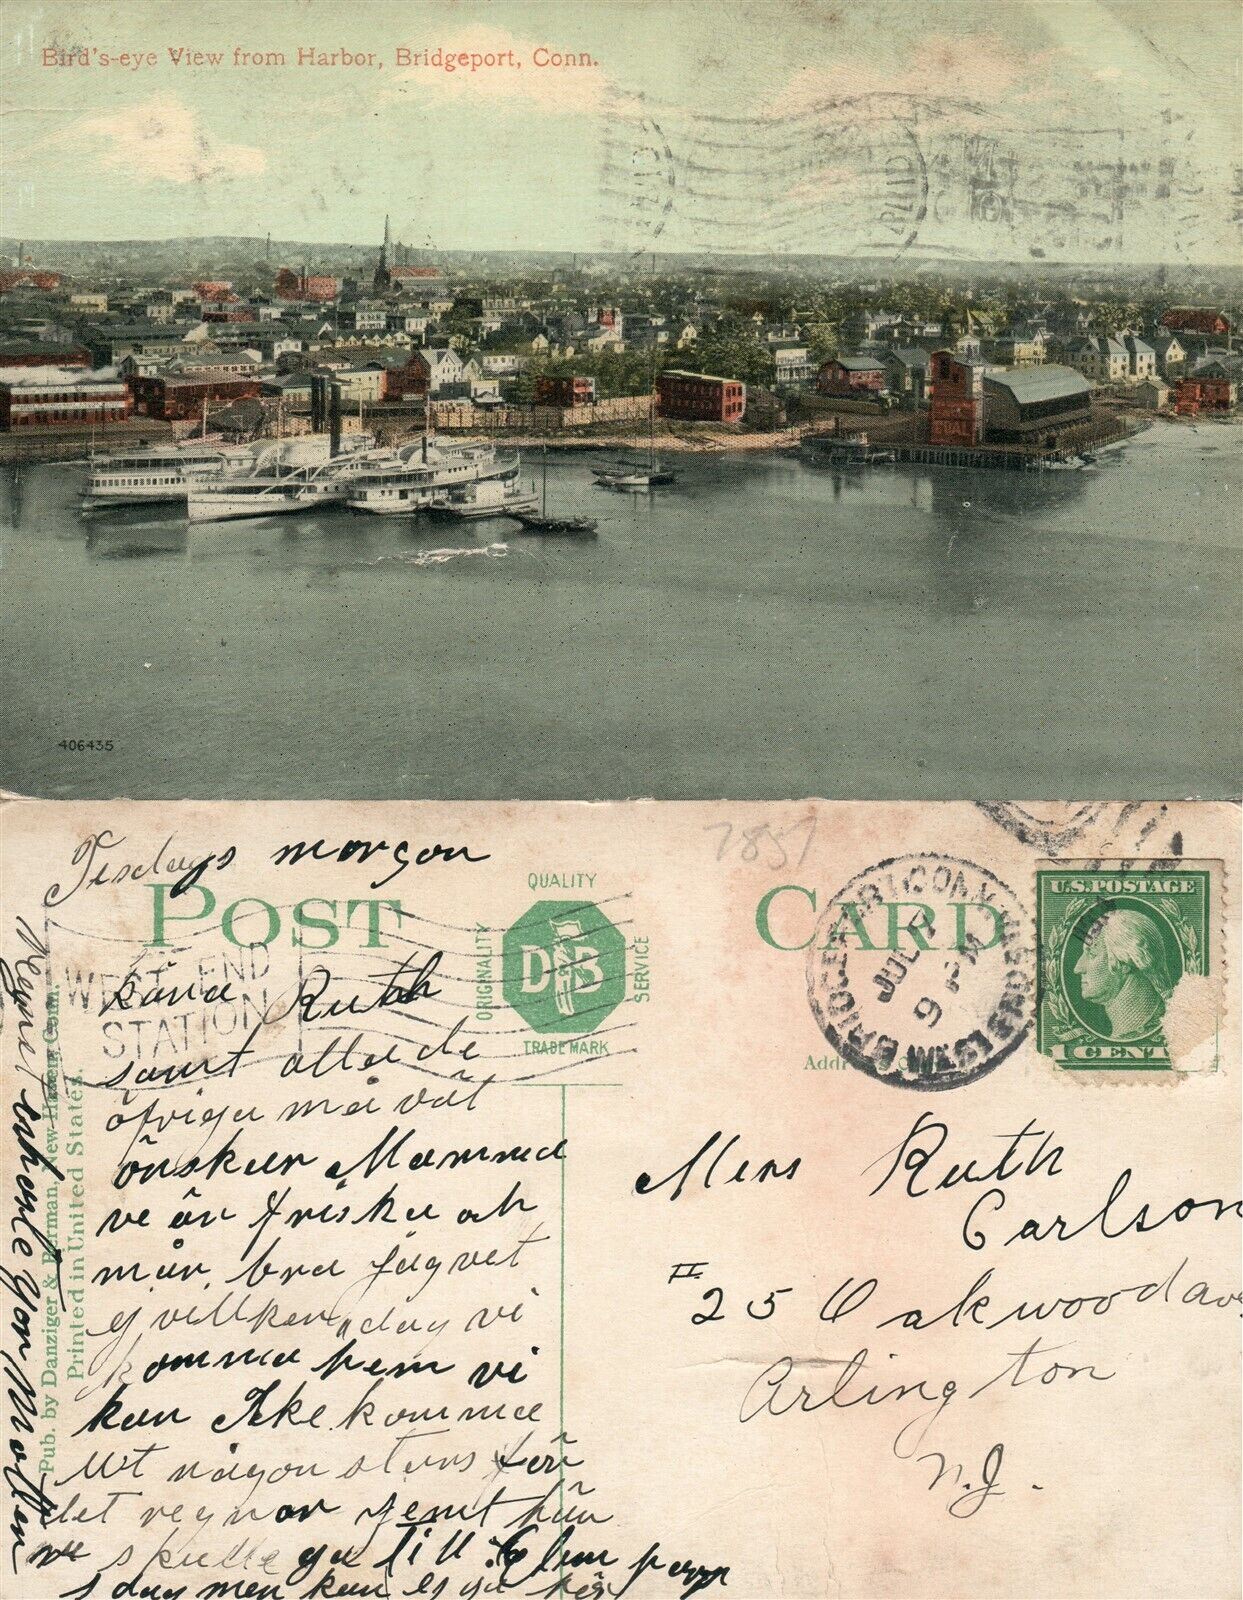 Bird's-eye View from Harbor, Bridgeport, Conn.
COAL
406435
7857
Tisdags morgon
POST CARD
QUALITY
ORIGINALITY
DPB
SERVICE
TRADE MARK
WEST END
STATION
BRIDGEPORT, CONN.
JUL 7
9 PM
U.S. POSTAGE
1 CENT
Kära Ruth
samt alla de
öfriga må väl
önskar Mamma
ve är friska och
mår bra jag vet
ej vilken dag vi
komma hem vi
kan Icke komma
ut någon stans för
det regnar jemt här
ve skulle ga till
s dag men kan ej ga
Regnet
Pub. by Danziger & Berman, New Haven, Conn.
Printed in United States.
Miss Ruth
Carlson
25 Oakwood av
Arlington
N.J.